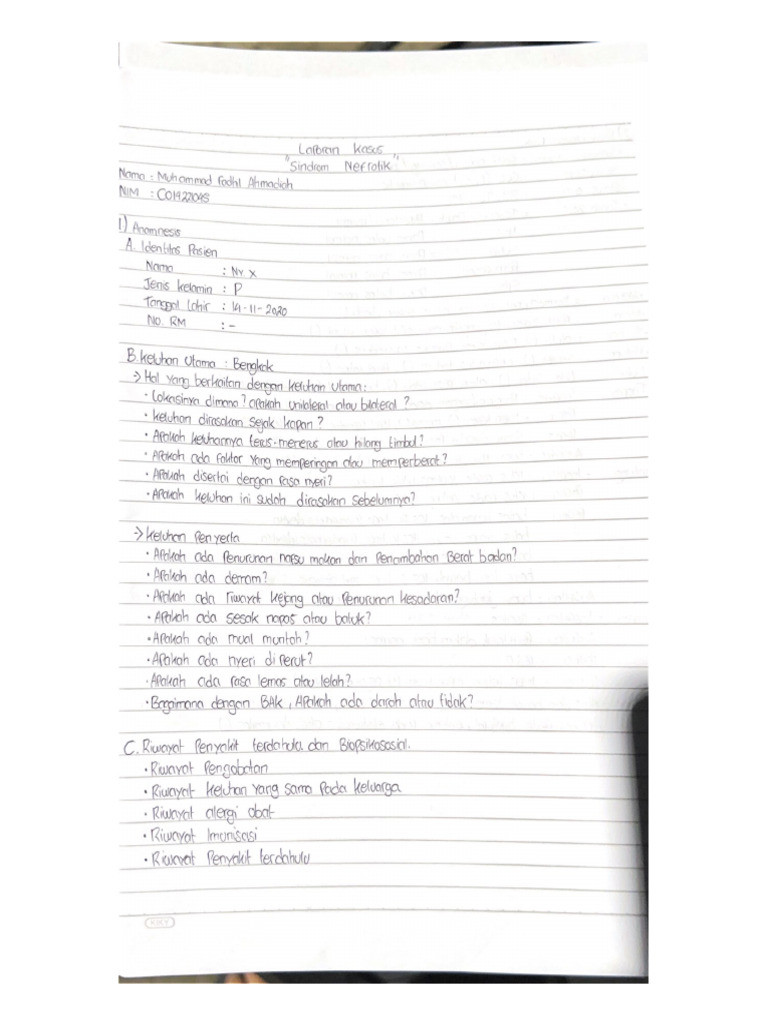 Laporan Kasus
"Sindrom Nefrotik"
Nama : Muhammad Fadhl Ahmadiah
NIM : C014221045
1) Anamnesis
A. Identitas Pasien
Nama : Ny. X
Jenis kelamin : P
Tanggal Lahir : 14-11-2020
No. RM : -
B. Keluhan Utama : Bengkak
→ Hal yang berkaitan dengan keluhan utama:
• Lokasinya dimana? apakah unilateral atau bilateral?
• Keluhan dirasakan sejak kapan?
• Apakah keluhannya terus-menerus atau hilang timbul?
• Apakah ada faktor yang memperingan atau memperberat?
• Apakah disertai dengan rasa nyeri?
• Apakah keluhan ini sudah dirasakan sebelumnya?
→ Keluhan Penyerta
• Apakah ada penurunan napsu makan dan Penambahan Berat badan?
• Apakah ada demam?
• Apakah ada riwayat kejang atau Penurunan kesadaran?
• Apakah ada sesak napas atau batuk?
• Apakah ada mual muntah?
• Apakah ada nyeri di perut?
• Apakah ada rasa lemas atau lelah?
• Bagaimana dengan BAK, Apakah ada darah atau tidak?
C. Riwayat Penyakit terdahulu dan Biopsikososial.
• Riwayat Pengobatan
• Riwayat keluhan yang sama pada keluarga
• Riwayat alergi obat
• Riwayat Imunisasi
• Riwayat Penyakit terdahulu
KKY